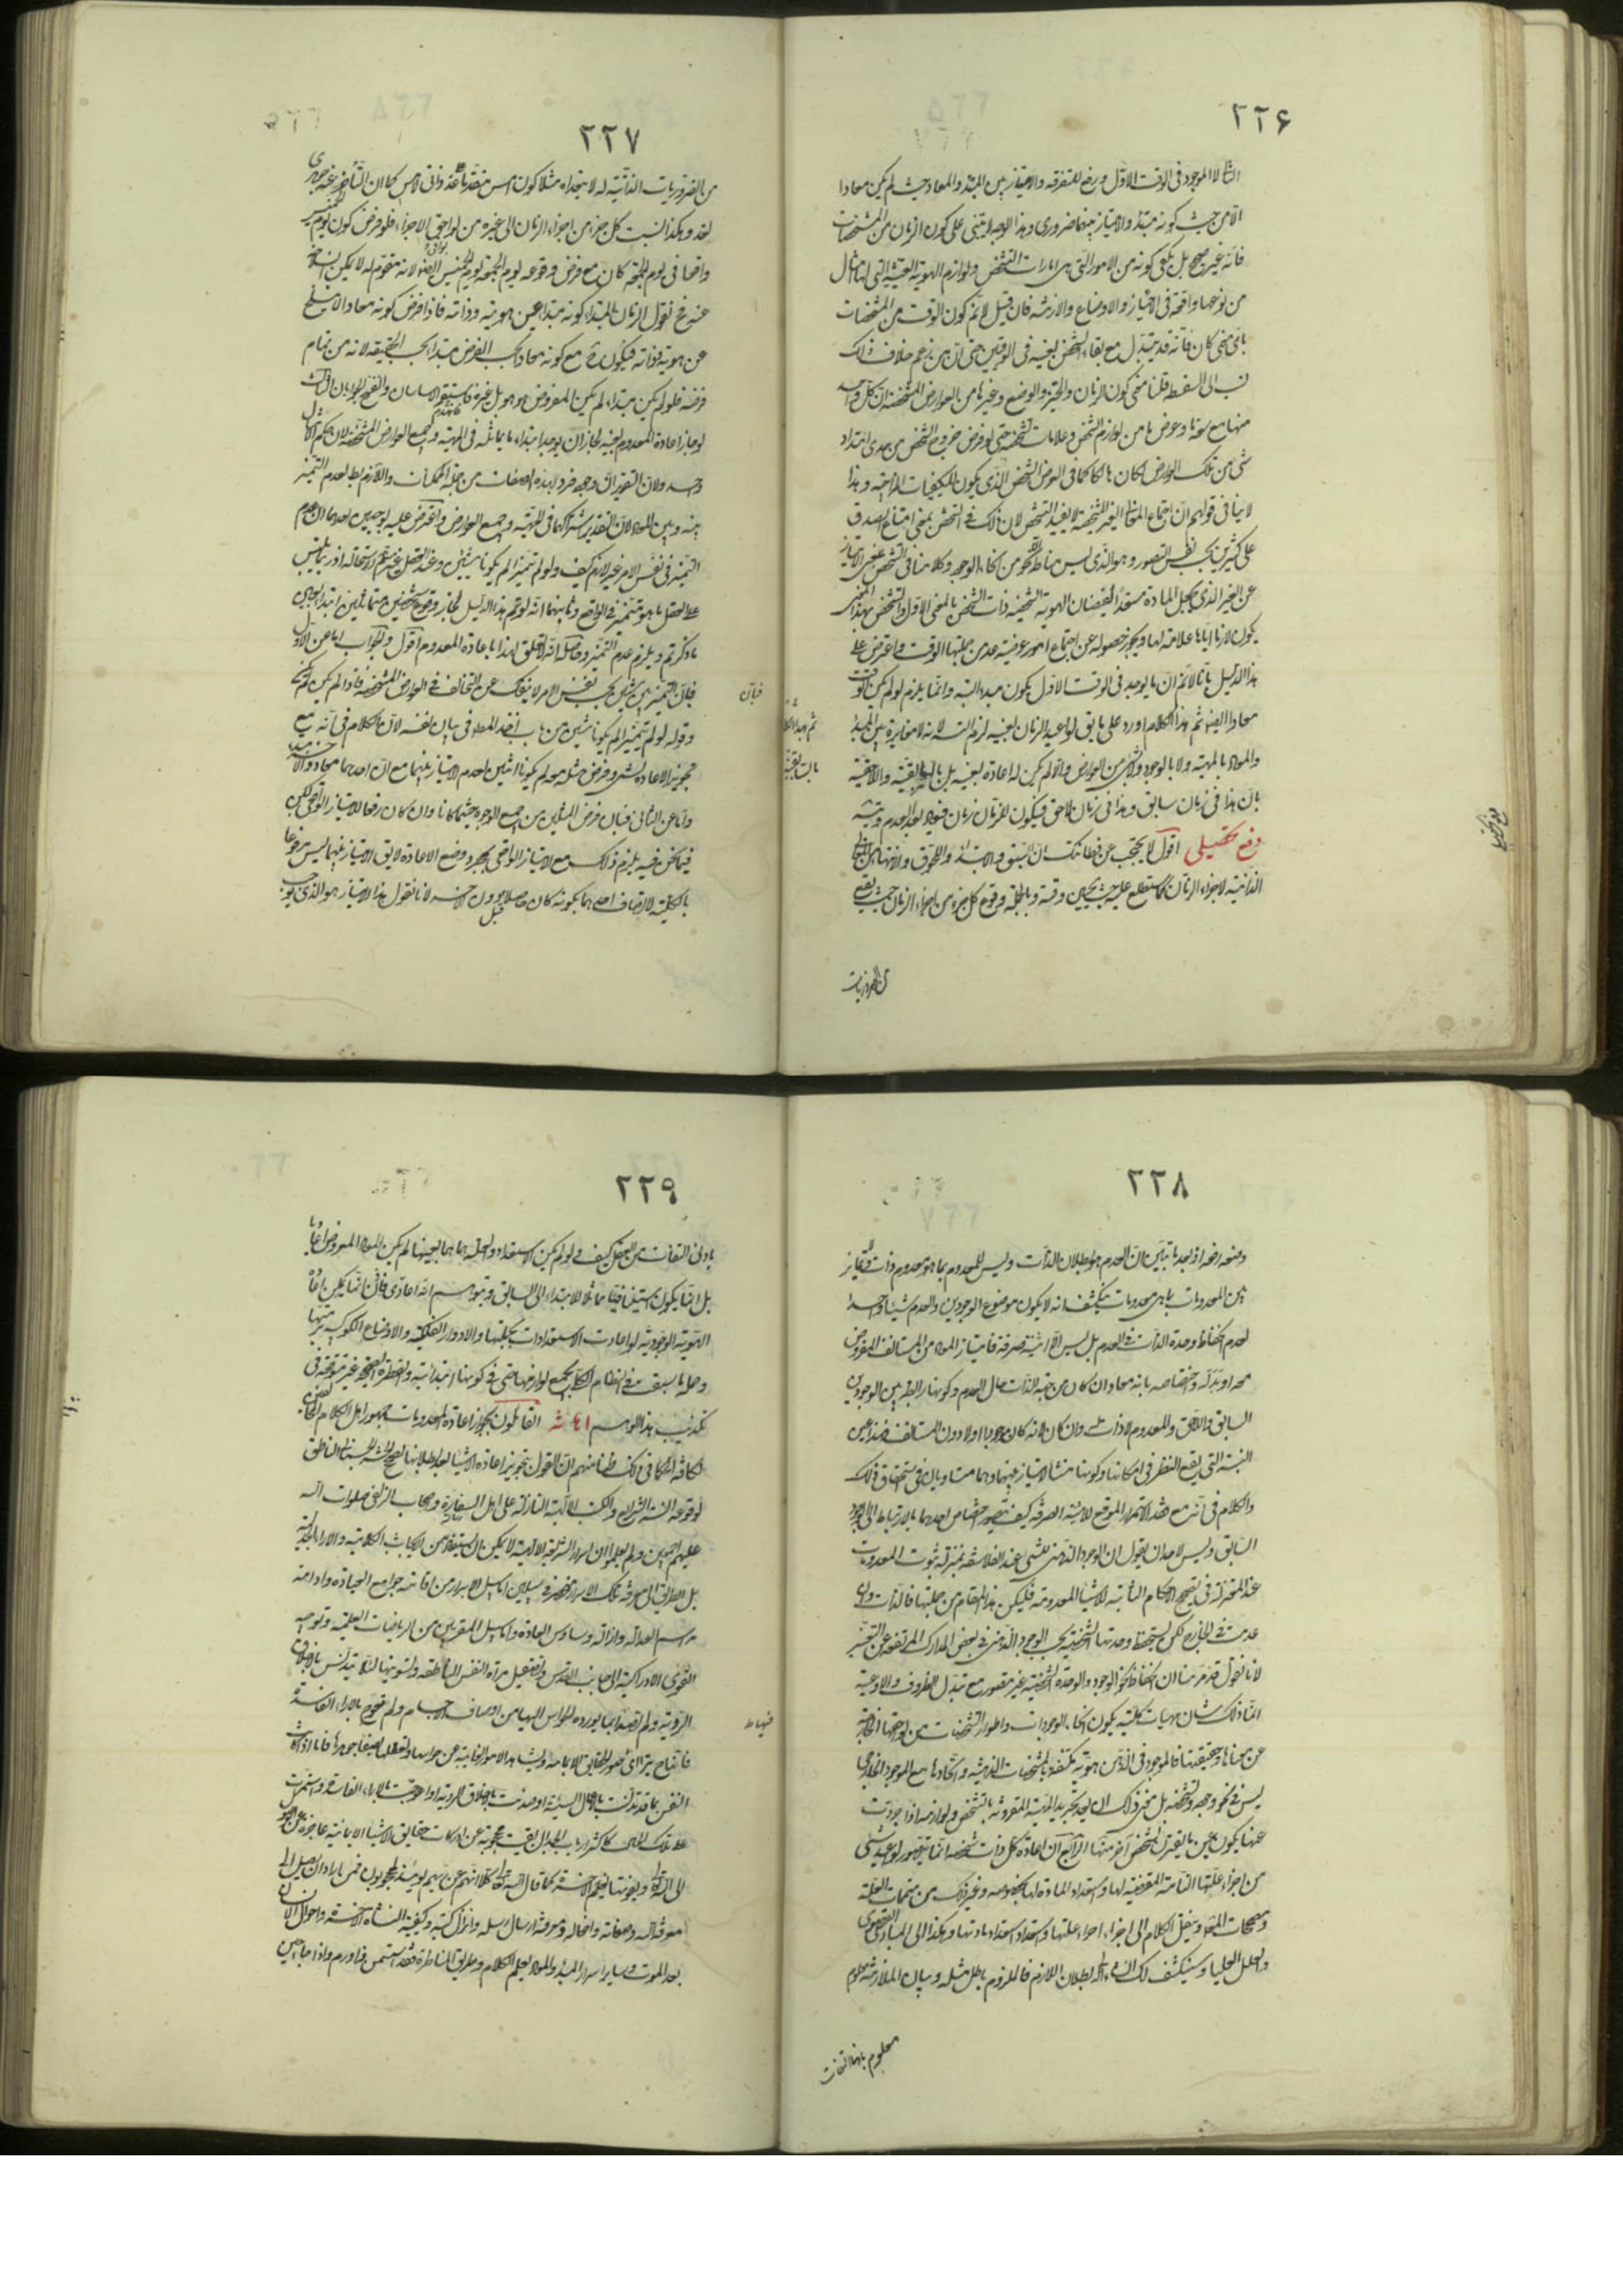 ٢٢۶
الثانى الا الموجود فى الوقت الاول ورفع للتفرقة والامتياز بين المبتدأ والمعاد حيث لم يكن معادا
الا من حيث كونه مبتدأ والامتياز بينهما ضرورى وهذا الوجه لا يبتنى على كون الزمان من المشخصات
فانه غير صحيح بل يكفى كونه من الامور التى هى امارات التشخص ولوازم الهوية العينية التى لها امثال
من نوعها واقعة فى الامتياز والاوضاع والازمنة فان قيل لا نم كون الوقت من المشخصات
باى معنى كان فانه قد يتبدل مع بقاء الشخص بعينه فى الوقتين حتى ان من زعم خلاف ذلك
نسب الى السفسطه قلنا معنى كون الزمان والحيز والوضع وغيرها من العوارض المشخصة ان كل واحد
منها مع سعة ما وعرض ما من لوازم الشخص وعلامات تشخصه حتى لو فرض خروج الشخص من حدى امتداد
شى من تلك العوارض لكان هالكا كما فى العرض الشخصى الذى يكون للكيفيات المزاجيه وهذا
لا ينافى قولهم ان اجتماع المعانى الغير المشخصة لا يفيد التشخص لان ذلك فى التشخص بمعنى امتناع الصدق
على كثيرين بحسب نفس التصور وهو الذى ليس مناطه الا نحو من انحاء الوجود وكلامنا فى التشخص بمعنى الامتياز
عن الغير الذى يجعل المادة مستعدة لفيضان الهوية الشخصية ذات التشخص بالمعنى الاول والتشخص بهذا المعنى
يكون لازما اياها علامة لها ويجوز حصوله عن اجتماع امور عرضية عد من جملتها الوقت واعترض على
هذا الدليل بانا لا نم ان ما يوجد فى الوقت الاول يكون مبتدأ البتة وانما يلزم لو لم يكن الوقت
معادا ايضا ثم هذا الكلام اورد على ما بق لو اعيد الزمان بعينه لزم التسلسل لانه لا مغايرة بين المبتدأ
والمعاد بالمهية ولا بالوجود ولا بشى من العوارض والا لم يكن له اعادة بعينه بل بالسابقية واللاحقية
بان هذا فى زمان سابق وهذا فى زمان لاحق فيكون للزمان زمان فيعاد بعد العدم ويتسلسل
دفع تحصيلى اقول لا يحتجب عن فطانتك ان السبق والابتداء واللحوق والانتهاء من المعانى
الذاتية لاجزاء الزمان كما ستطلع عليه حيث يحين وقته وبالجملة وقوع كل جزء من اجزاء الزمان حيث يقع
من الضروريات
٢٢٧
من الضروريات الذاتية له لا يتعداه مثلا كون امس متقدما على غد ذاتى لامس كما ان التأخر عنه جوهرى
لغد وهكذا نسبت كل جزء من اجزاء الزمان الى غيره من بواقى الاجزاء فلو فرض كون يوم الخميس
واقعا فى يوم الجمعة كان مع فرض وقوعه يوم الجمعة يوم الخميس ايضا لانه مقوم له لا يمكن انسلاخه
عنه فح نقول الزمان المبتدا كونه مبتدا عين هويته وذاته فاذا فرض كونه معادا لا ينسلخ
عن هويته وذاته فيكون ح مع كونه معادا بحسب الفرض مبتدا بحسب الحقيقة لانه من تمام
فرضه فلو لم يكن مبتدا لم يكن المفروض هو هو بل غيره فانهدم الاساسان وانفتح الجوابان
لو جاز اعادة المعدوم بعينه لجاز ان يوجد ابتداء ما يماثله فى المهية وجميع العوارض المشخصة لان حكم الامثال
واحد ولان التقدير ان وجود فرد بهذه الصفات من جملة الممكنات واللازم بط لعدم التميز
بينه وبين المعاد لان التقدير اشتراكهما فى المهية وجميع العوارض واعترض عليه بوجهين احدهما ان عدم
التميز فى نفس الامر غير لازم كيف ولو لم تتميزا لم يكونا شيئين وعند العقل غير مسلم الاستحاله اذ ربما يلتبس
على العقل ما هو متميز فى الواقع وثانيهما انه لو تم هذا الدليل لجاز وقوع شخصين متماثلين ابتداء بعين
ما ذكرتم ويلزم عدم التميز وحاصله انه لا تعلق لهذا باعادة المعدوم اقول والجواب اما عن الاول
فبان التميز بين شيئين بحسب نفس الامر لا ينفك عن التخالف فى العوارض المشخصة فاذا لم يكن لم يكن
وقوله لو لم تتميزا لم يكونا شيئين من باب اخذ المطلوب فى بيان نفسه لان الكلام فى انه مع
تجويز الاعادة لشى وفرض مثل معه لم يكونا اثنين لعدم الامتياز بينهما مع ان احدهما معاد والاخر مبتدا
واما عن الثانى فبان فرض المثلين من جميع الوجوه حيثما كانا وان كان رفعا للامتياز الواقعى لكن
فيما نحن فيه يلزم ذلك مع الامتياز الواقعى بمجرد وضع الاعادة لا يق الامتياز بينهما ليس مرفوعا
بالكلية لاتصاف احدهما بكونه كان حاصلا قبل دون الاخر لانا نقول هذا الامتياز هو الذى يوجب
٢٢٨
وضعه رفعه اذ بعد ما تبين ان العدم هو بطلان الذات وليس للمعدوم بما هو معدوم ذات ولا تمايز
بين المعدومات بما هى معدومات ينكشف انه لا يكون موضوع الوجودين والعدم شيئا واحدا
لعدم انحفاظ وحدة الذات فى العدم بل ليس الا اثنينية صرفة فامتياز المعاد من المستانف المفروض
معه او بدله واختصاصه بانه معاد ان كان من جهة الذات حال العدم وكونها رابطه بين الوجودين
السابق واللاحق والمعدوم لا ذات له وان كان لانه كان موجودا اولا دون المستانف فهذا عين
النسبة التى يقع النظر فى امكانها وكونها منشا الامتياز بينهما وهما متساويان فى استحقاق ذلك
والكلام فى انه مع هذا الاستمرار الموقع للاثنينية الصرفة كيف يتصور اختصاص احدهما بالارتباط الى الوجود
السابق وليس لاحد ان يقول ان الوجود الذهنى للشى عند الفلاسفه بمنزلة ثبوت المعدومات
عند المعتزلة فى تصحيح الاحكام الثابته للاشياء المعدومة فليكن هذا المقام من جملتها فالذات وان
عدمت فى الخارج لكن يستحفظ وحدتها الشخصية بحسب الوجود الذهنى فى بعض المدارك المرتفعة عن التغير
لانا نقول قد مر منا ان انحفاظ نحو الوجود والوحدة الشخصية غير متصور مع تبدل الظروف والاوعية
انما ذلك شان مهيات كلية يكون انحاء الوجودات واطوار التشخصات من لواحقها الخارجة
عن معناها وحقيقتها فالموجود فى الذهن هوية مكتنفة بالمشخصات الذهنية واتحادها مع الموجود الخارجى
ليس فى نحو وجوده وتشخصه بل معنى ذلك ان بعد تجريد المهية المقرونة بالتشخص ولوازمه اذا جردت
عنها يكون عين ما يقترن لتشخص اخر منها الرابع ان اعادة كل ذات شخصه انما يتصور لو اعيد شى
من اجزاء علتها التامة المقتضية لها واستعداد المادة لها بخصوصه وغير ذلك من متممات العلة
ومصححات المعلول وينقل الكلام الى اجزاء اجزاء علتها واستعداد استعداد مادتها وهكذا الى المبادى القصوى
والعلل العليا وسينكشف لك انشاء الله بطلان اللازم فالملزوم باطل مثله وبيان الملازمة معلوم
معلوم بادنى التفات
٢٢٩
بادنى التفات من العقل كيف ولو لم يكن الاستعداد والعلة هما هما بعينهما لم يكن المعاد المفروض اعادة
بل انما يكون استينافيا مماثلا للابتداء الى السابق ويتوهم انه اعادى فاذن انما يمكن اعادة
الهوية الوجودية لو اعادت الاستعدادات بجملتها والادوار الفلكية والاوضاع الكوكبيه برمتها
وجملة ما سبق فى النظام الكلى بجميع لوازمها حتى فى كونها ابتدائية والفطرة الصحيحة غير متوقفة فى
تكذيب هذا الوهم اشارة القائلون بجواز اعادة المعدومات جمهور اهل الكلام المخالفين
لكافة الحكماء فى ذلك ظنا منهم ان القول بتجويز اعادة الاشياء بعد بطلانها يصحح الحشر الجسمانى الناطق
بوقوعه السنة الشرايع والكتب الالهية النازلة على اهل السفارة واصحاب الزلفى صلوات الله
عليهم اجمعين ولم يعلموا ان اسرار الشريعة الالهية لا يمكن ان يستفاد من الابحاث الكلامية والاراء الجدلية
بل الطريق الى معرفة تلك الاسرار منحصر فى سبيلين اما سبيل الابرار من اقامة جوامع العبادة وادامة
مراسم العدالة وازالة وساوس العادة واما سبيل المقربين من الرياضات العلمية وتوجيه
القوى الادراكية الى جانب القدس وتصقيل مرآة النفس الناطقة وتسويتها لئلا يتدنس بالاخلاق
الردية ولم تصدأ بما يورده الحواس اليها من اوصاف الاجسام ولم تعوج بالاراء الفاسدة
فانها ح يتراءى صور الحقايق الايمانية ويشاهد الامور الغايبة عن حواسها وتعقلها بصفاء جوهرها فاما اذا كانت
النفس مما قد تدنست بالاعمال السيئة او صدئت بالاخلاق الردية او اعوجت بالاراء الفاسدة واستمرت
على تلك الحال كاكثر ارباب الجدال بقيت محجوبة عن ادراك حقايق الاشياء الايمانية عاجزة عن الوصول
الى الله تعالى ويفوتها نعيم الاخرة كما قال الله تعالى كلا انهم عن ربهم يومئذ لمحجوبون فمن اراد ان يصل الى
معرفة الله وصفاته وافعاله ومعرفة ارسال رسله وانزال كتبه وكيفية النشأة الاخرة واحوال الانسان
بعد الموت وساير اسرار المبدأ والمعاد بعلم الكلام وطريق المناظرة فقد استسمن ذا ورم واذا جاء حين